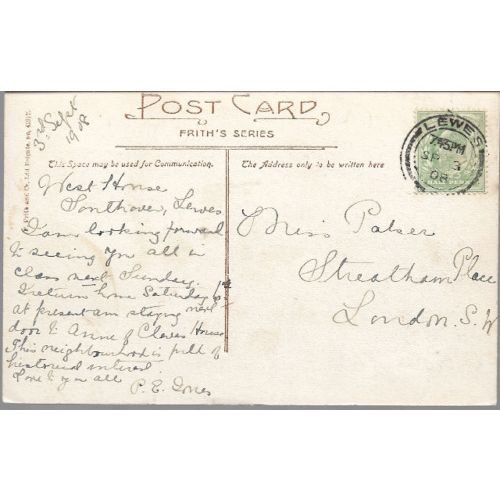 POST CARD
FRITH'S SERIES
This Space may be used for Communication.
The Address only to be written here
3rd Sept
1908
West House
Southover, Lewes
I am looking forward
to seeing you all in
Class next Sunday.
I return home Saturday
at present am staying next
door to Anne of Cleves House
This neighbourhood is full of
historical interest.
Love to you all
P. E. Jones
Miss Palser
Streatham Place
London. S. W
LEWES
7.45PM
SP 3
08